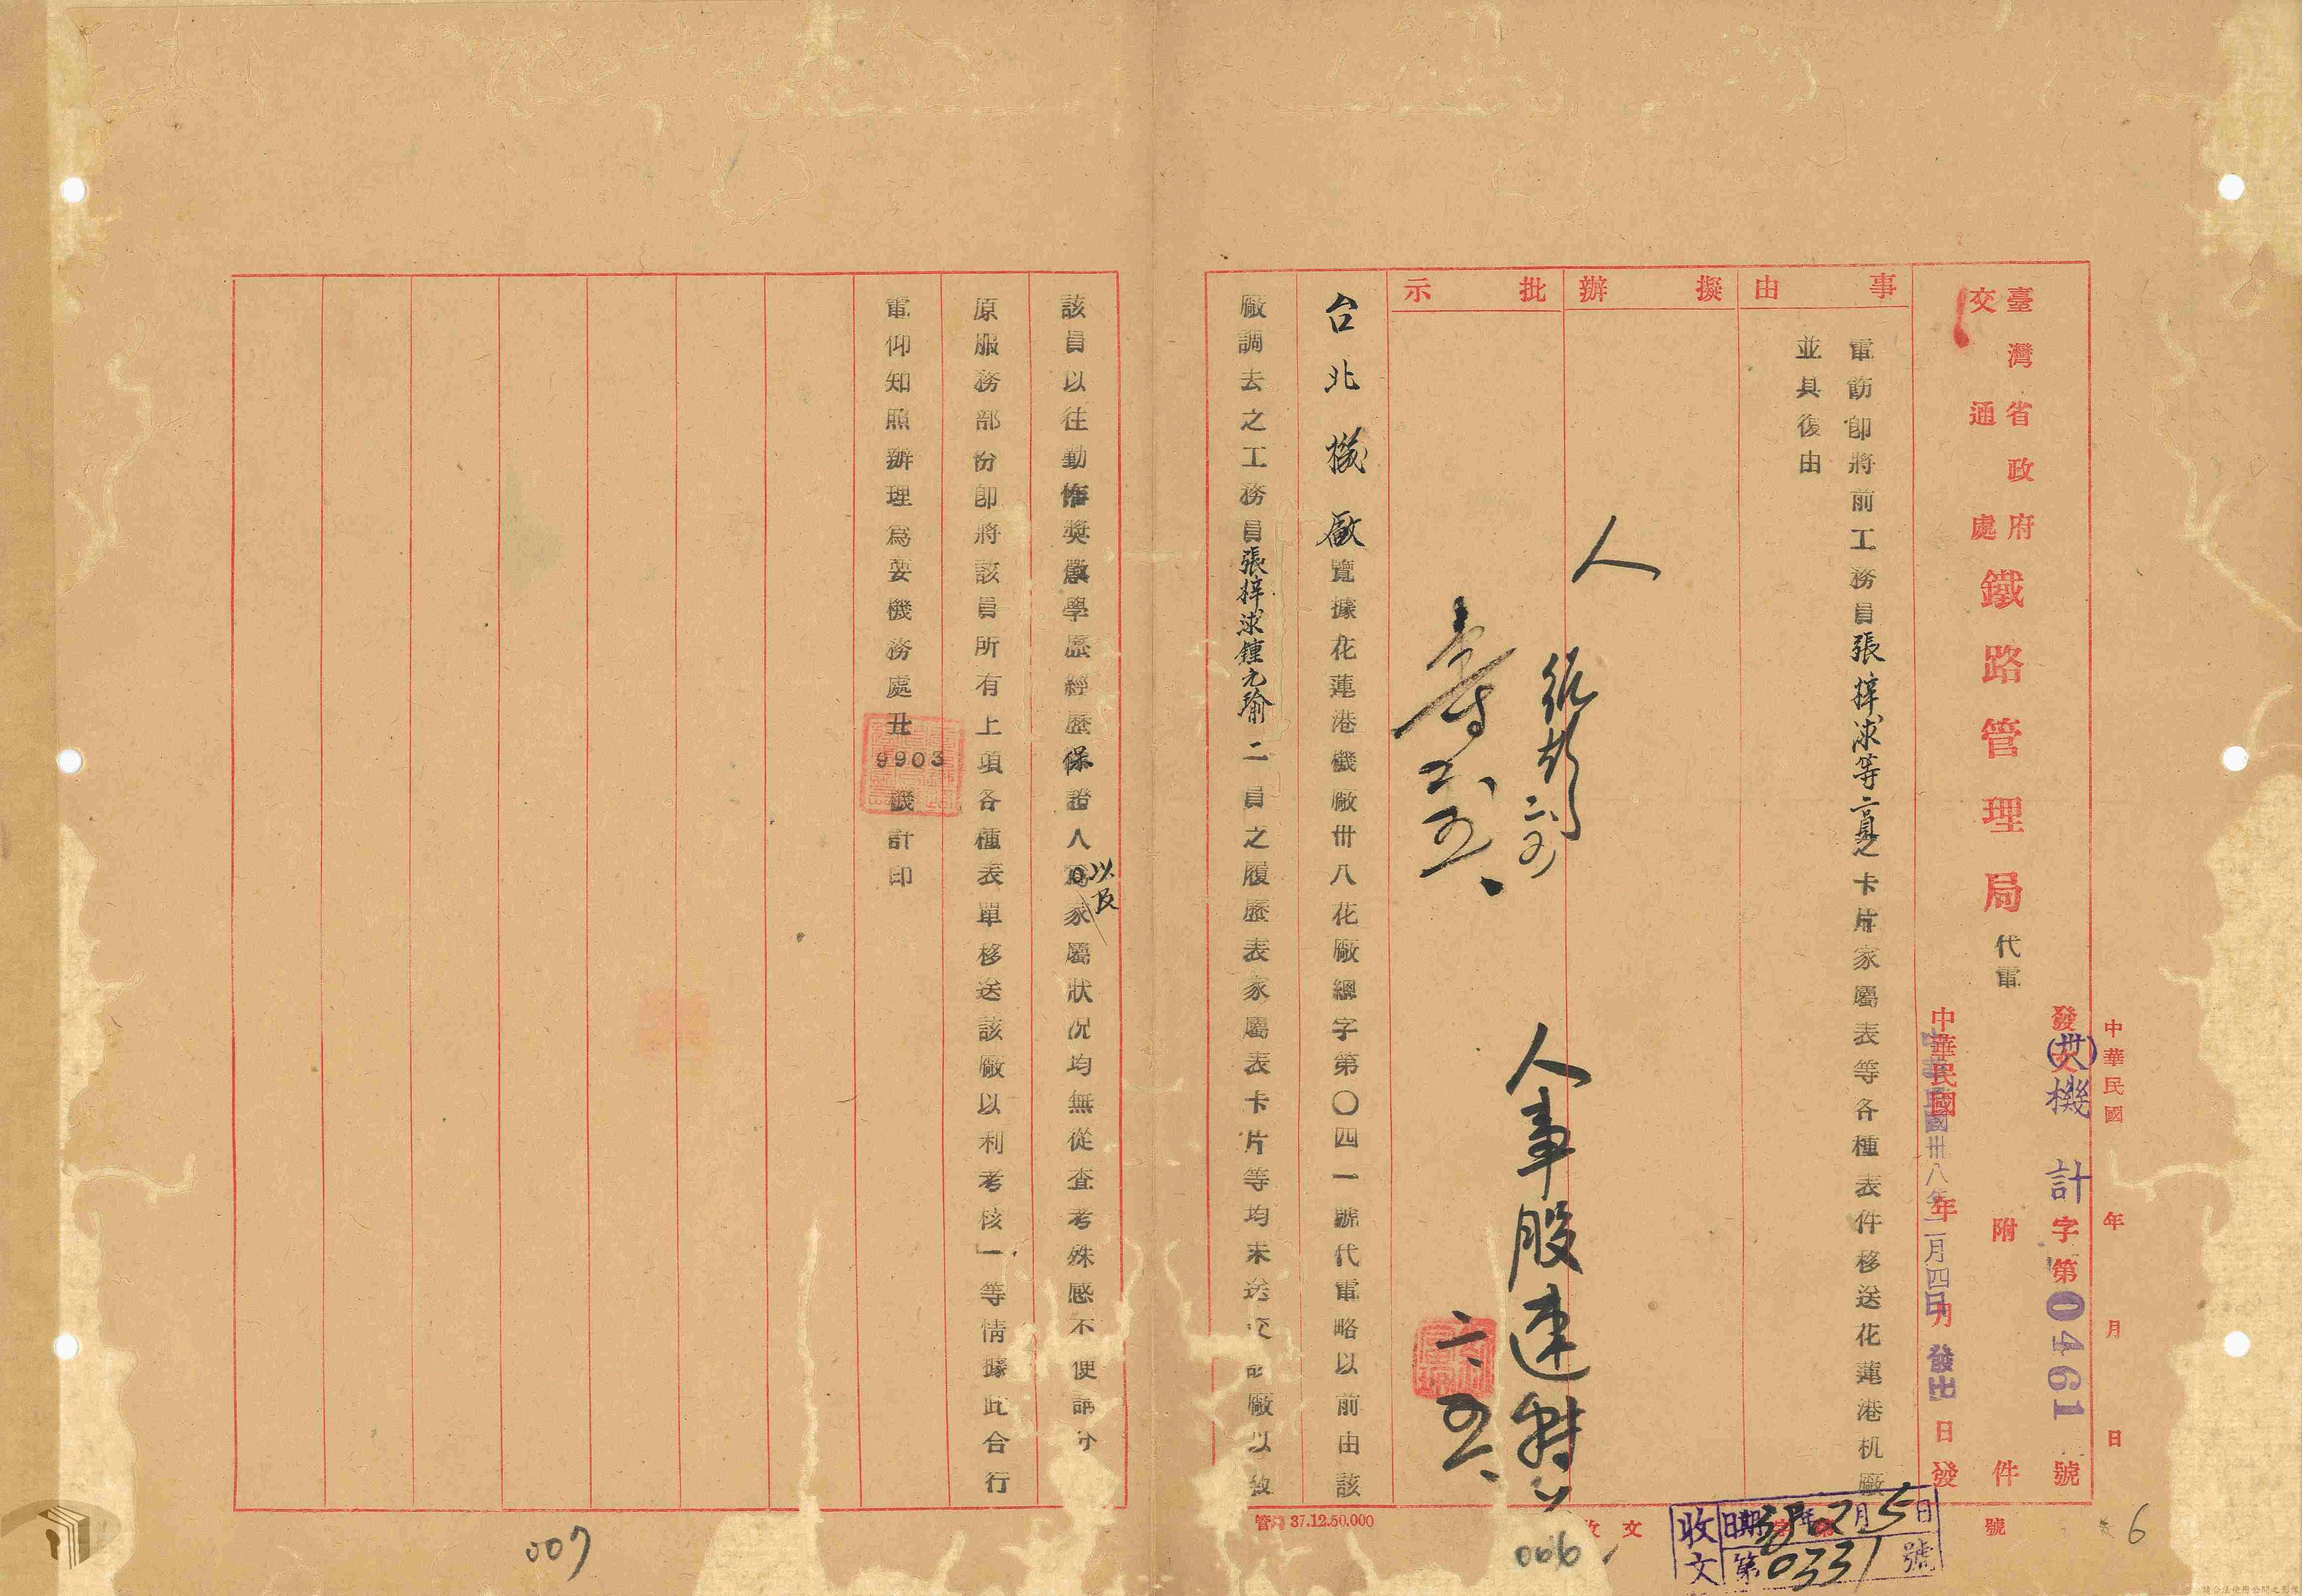 中華民國 年 月 日
發文(卅八)機計字第0461號
臺灣省政府
交通處
鐵路管理局代電
附件
中華民國 年 月 日發
中華民國卅八年二月四日發出
事由
電飭卽將前工務員張梓浗等二員之卡片家屬表等各種表件移送花蓮港机廠
並具復由
擬辦
批示
人
人事股速辦
二、五、
台北機廠覽據花蓮港機廠卅八花廠總字第〇四一號代電略以前由該
廠調去之工務員張梓浗鍾元瑜二員之履歷表家屬表卡片等均未送交 廠以致
該員以往勤惰獎懲學歷經歷保證人以及家屬狀況均無從查考殊感不便請分
原服務部份卽將該員所有上項各種表單移送該廠以利考核」等情據此合行
電仰知照辦理爲要機務處丑
9903
機計印
管 37.12.50.000
收文 字第 號
收文 日期38年02月5日
第0331號
6
006
007